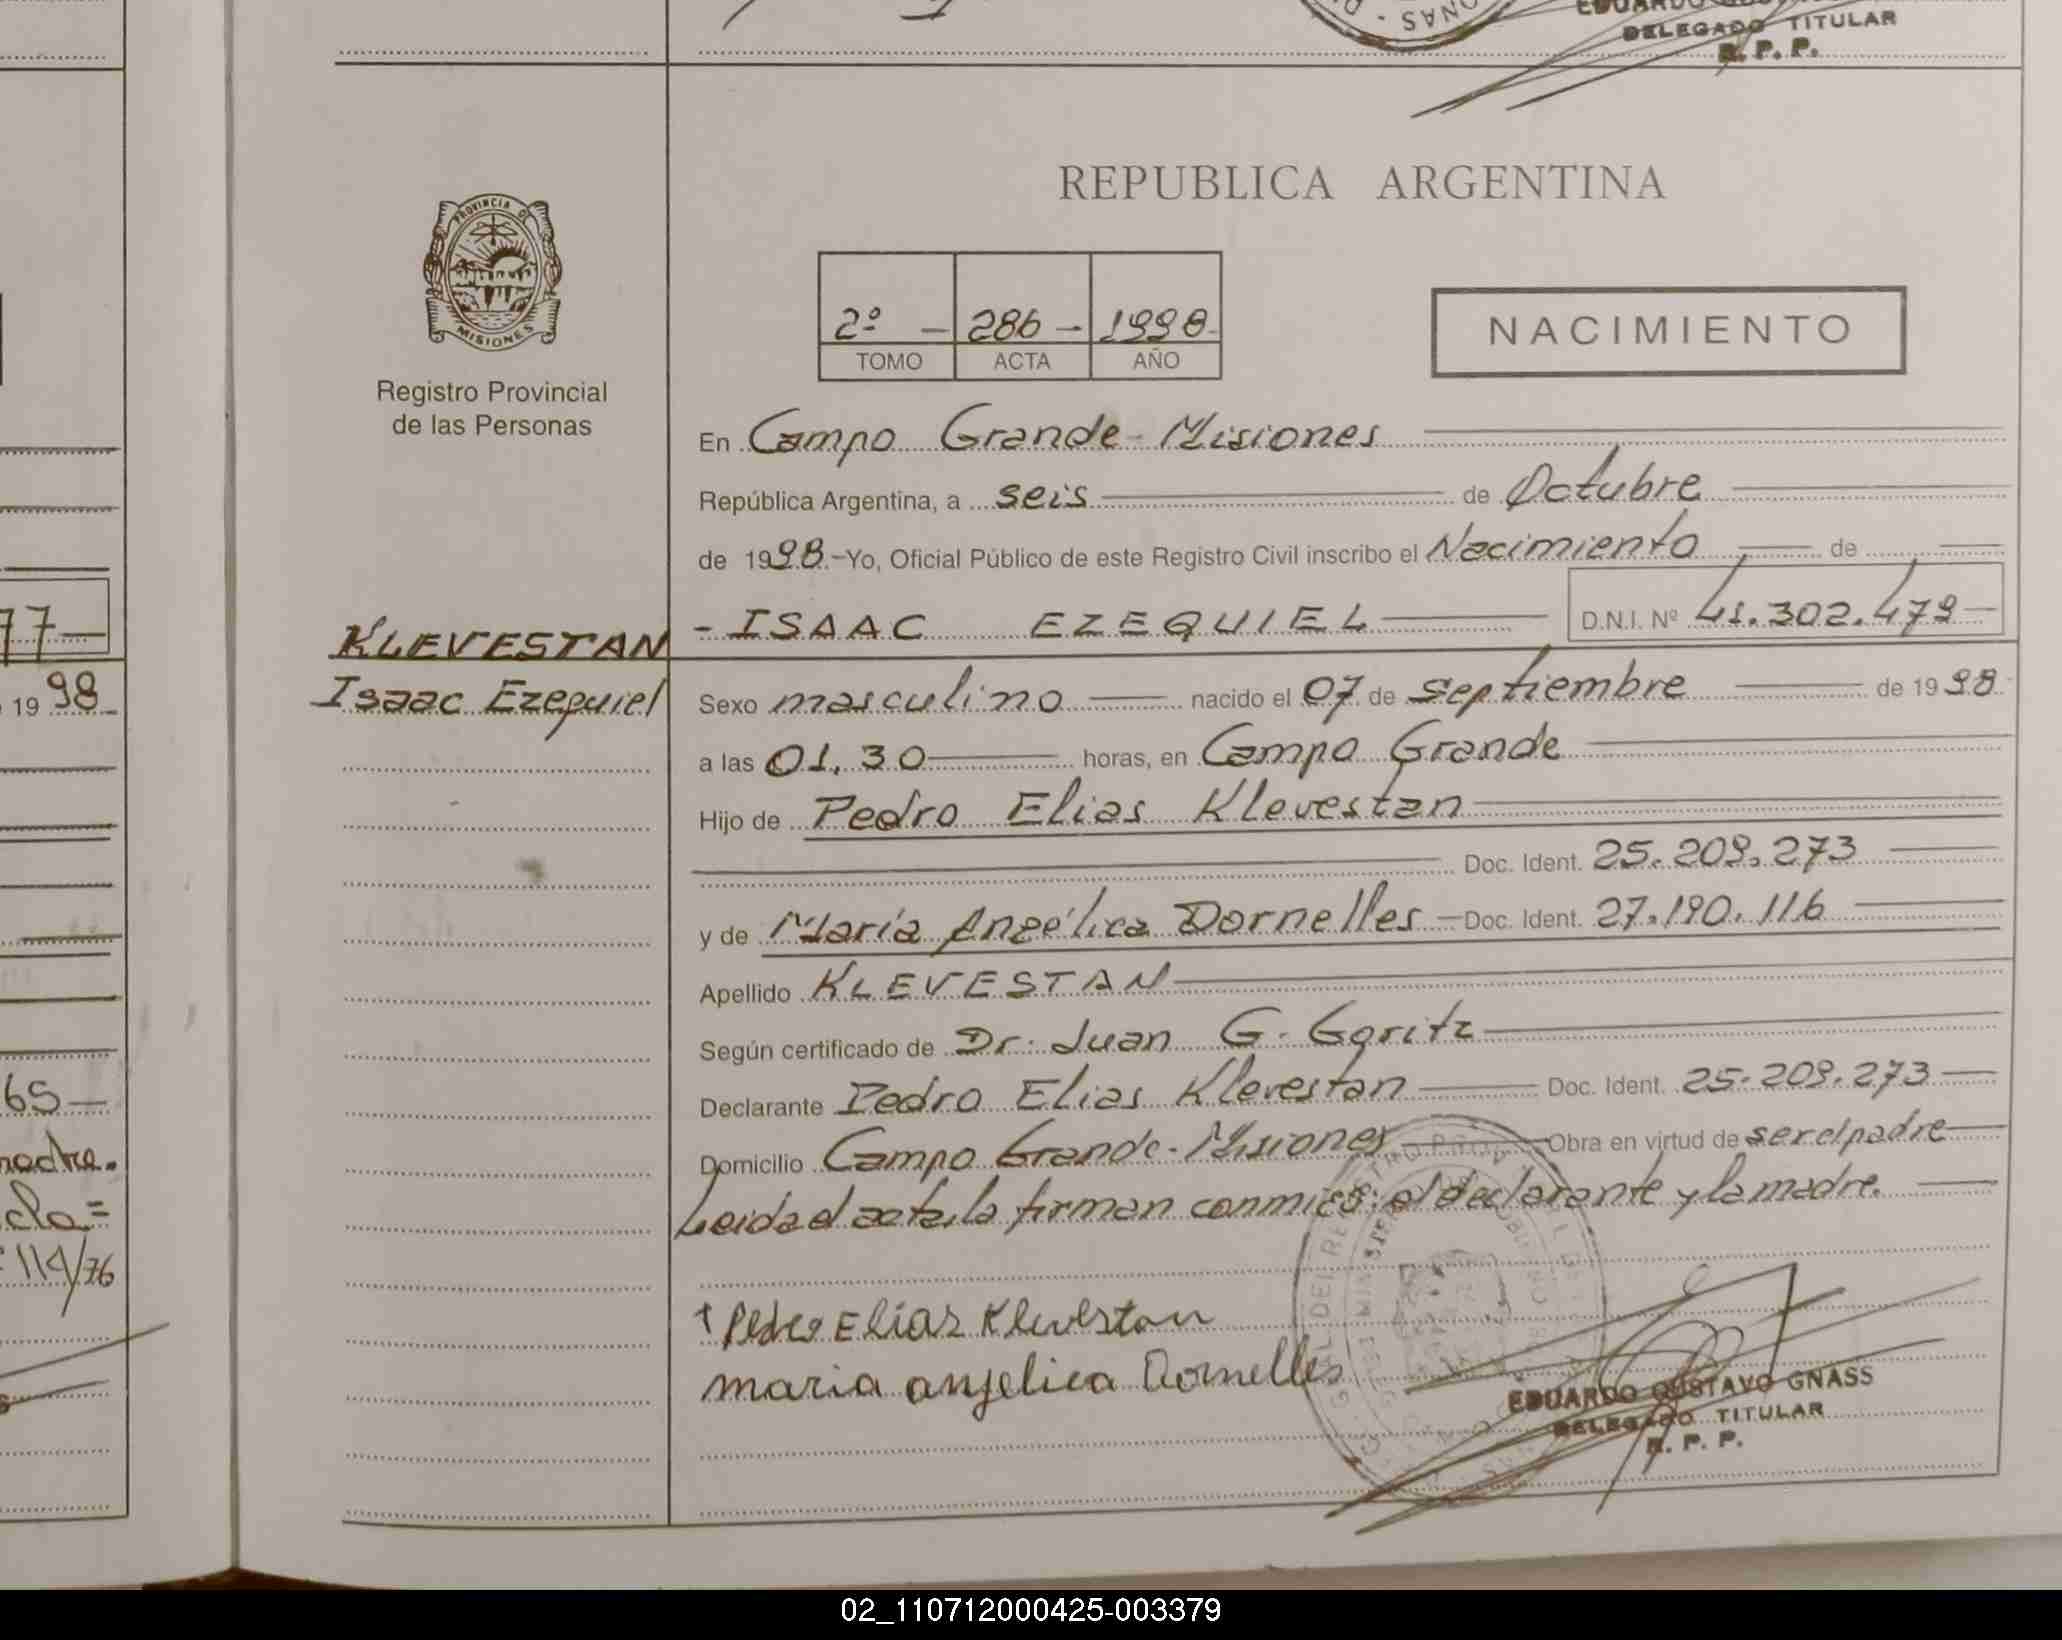 EDUARDO
DELEGADO TITULAR
R. P. P.
REPUBLICA ARGENTINA
PROVINCIA DE
MISIONES
Registro Provincial
de las Personas
2º - 286 - 1998
TOMO ACTA AÑO
NACIMIENTO
En Campo Grande - Misiones
República Argentina, a seis de Octubre
de 1998.- Yo, Oficial Público de este Registro Civil inscribo el Nacimiento de
- ISAAC EZEQUIEL D.N.I. Nº 41.302.479
KLEVESTAN
Isaac Ezequiel
Sexo masculino nacido el 07 de septiembre de 1998
a las 01.30 horas, en Campo Grande
Hijo de Pedro Elias Klevestan
Doc. Ident. 25.209.273
y de María Angélica Dornelles - Doc. Ident. 27.190.116
Apellido KLEVESTAN
Según certificado de Dr. Juan G. Goritz
Declarante Pedro Elias Klevestan Doc. Ident. 25.209.273
Domicilio Campo Grande - Misiones Obra en virtud de ser el padre
Leida el acta, la firman conmigo: el declarante y la madre.
Pedro Elías Klevestan
maria angelica Dornelles
EDUARDO GUSTAVO GNASS
DELEGADO TITULAR
R. P. P.
77
1998
65
madre.
114/76
02_110712000425-003379